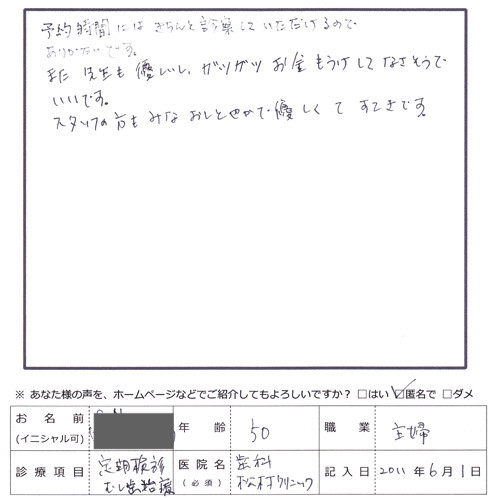 予約時間にはきちんと診察していただけるので
ありがたいです。
また先生も優しいし、ガツガツお金もうけしてなさそうで
いいです。
スタッフの方もみなおしとやかで優しくてすてきです。
※ あなた様の声を、ホームページなどでご紹介してもよろしいですか？ □はい ☑匿名で □ダメ
お名前 (イニシャル可) 年齢 50 職業 主婦
診療項目 定期検診 むし歯治療 医院名 (必須) 歯科 松村クリニック 記入日 2011年6月1日